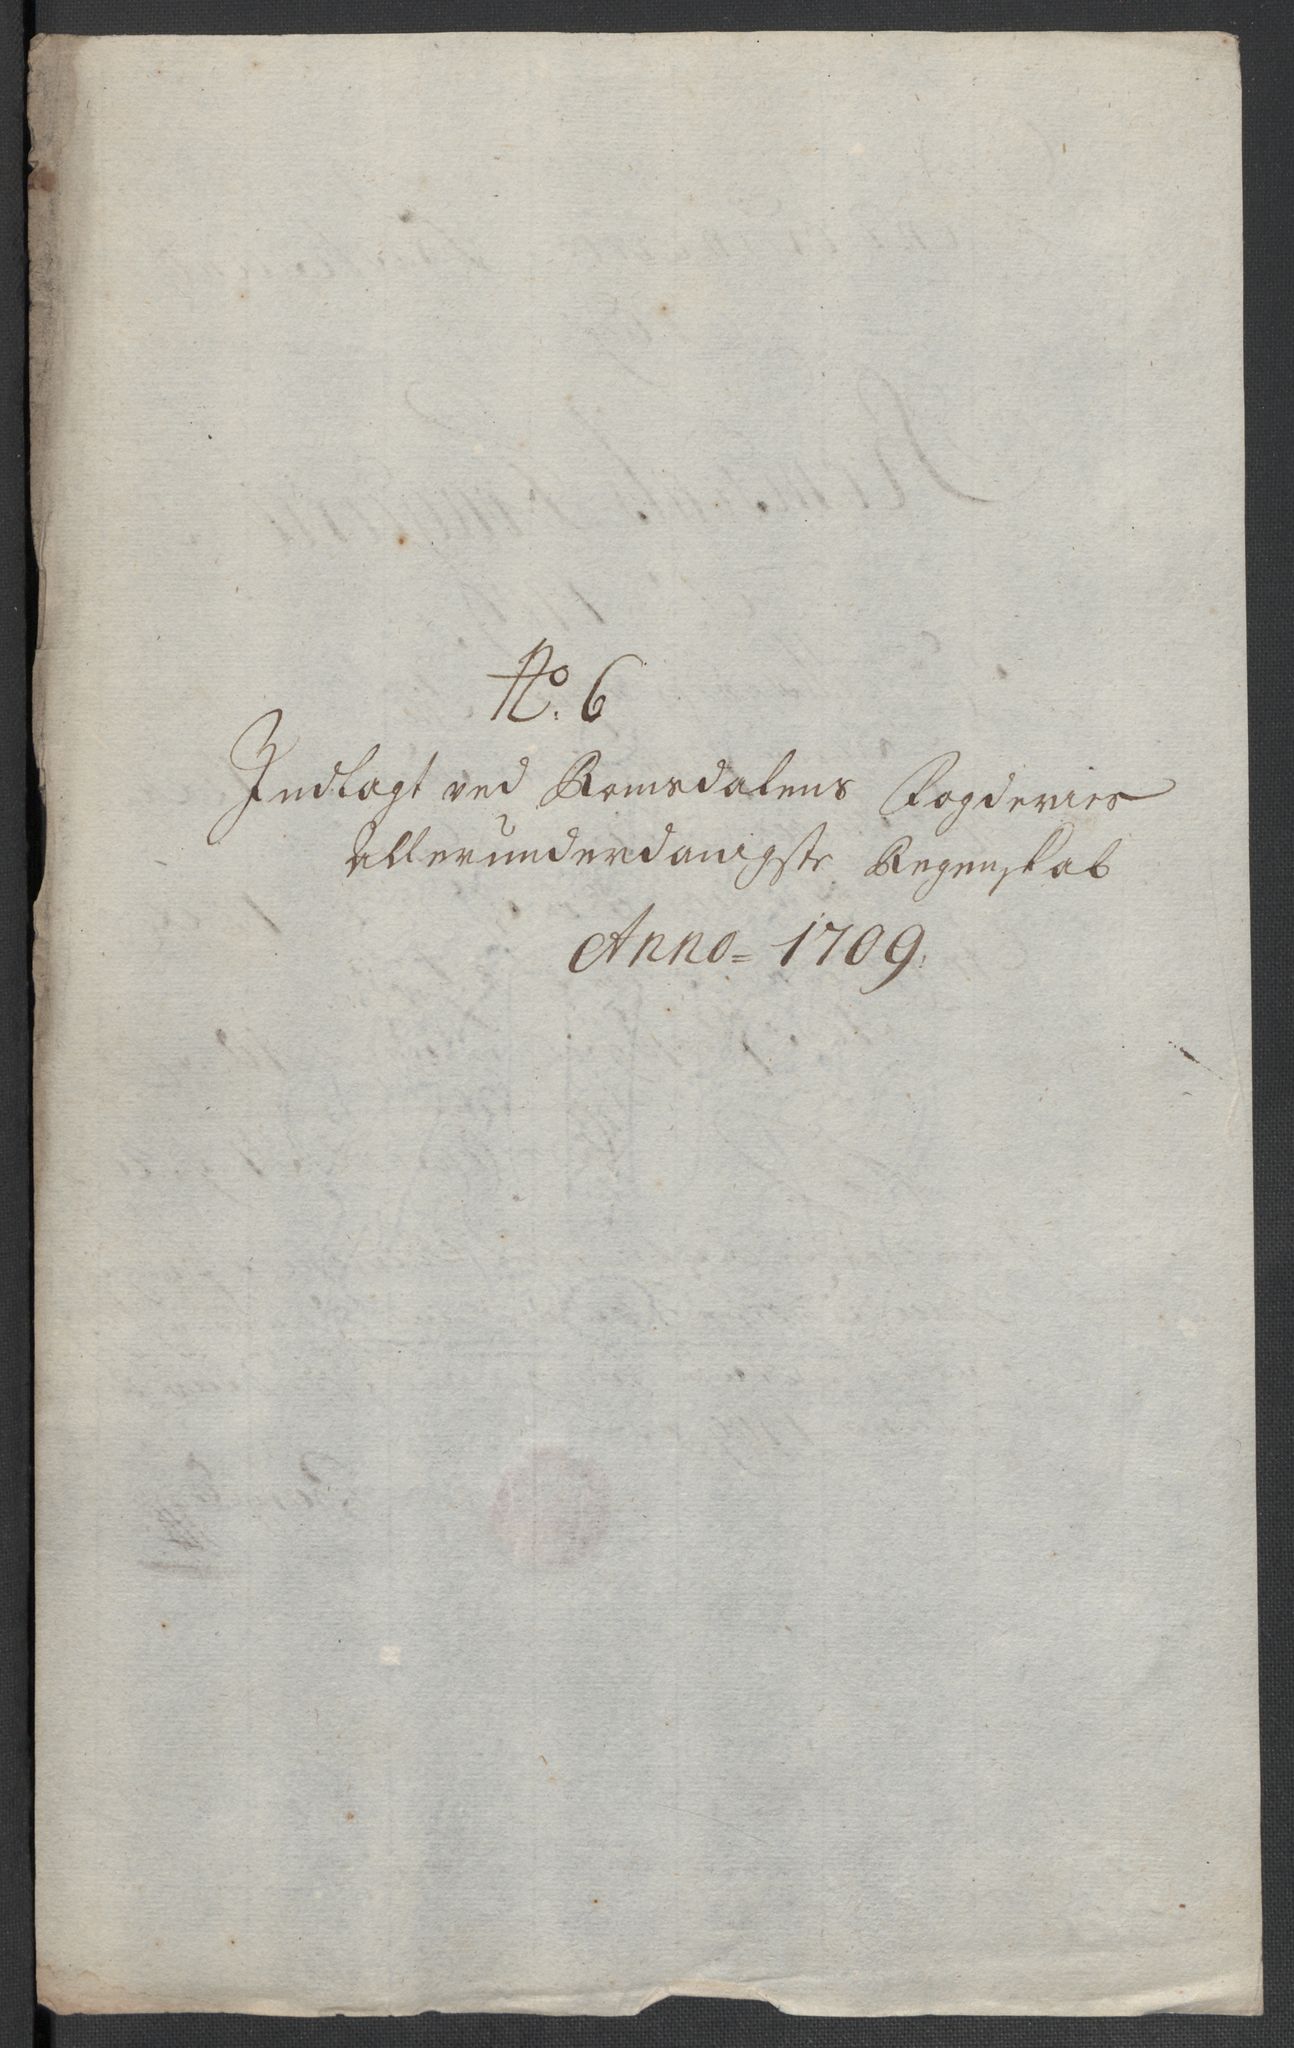 No. 6
Indlagt ved Romsdalens Fogderies
allerunderdanigste Regenskab
Anno = 1709.